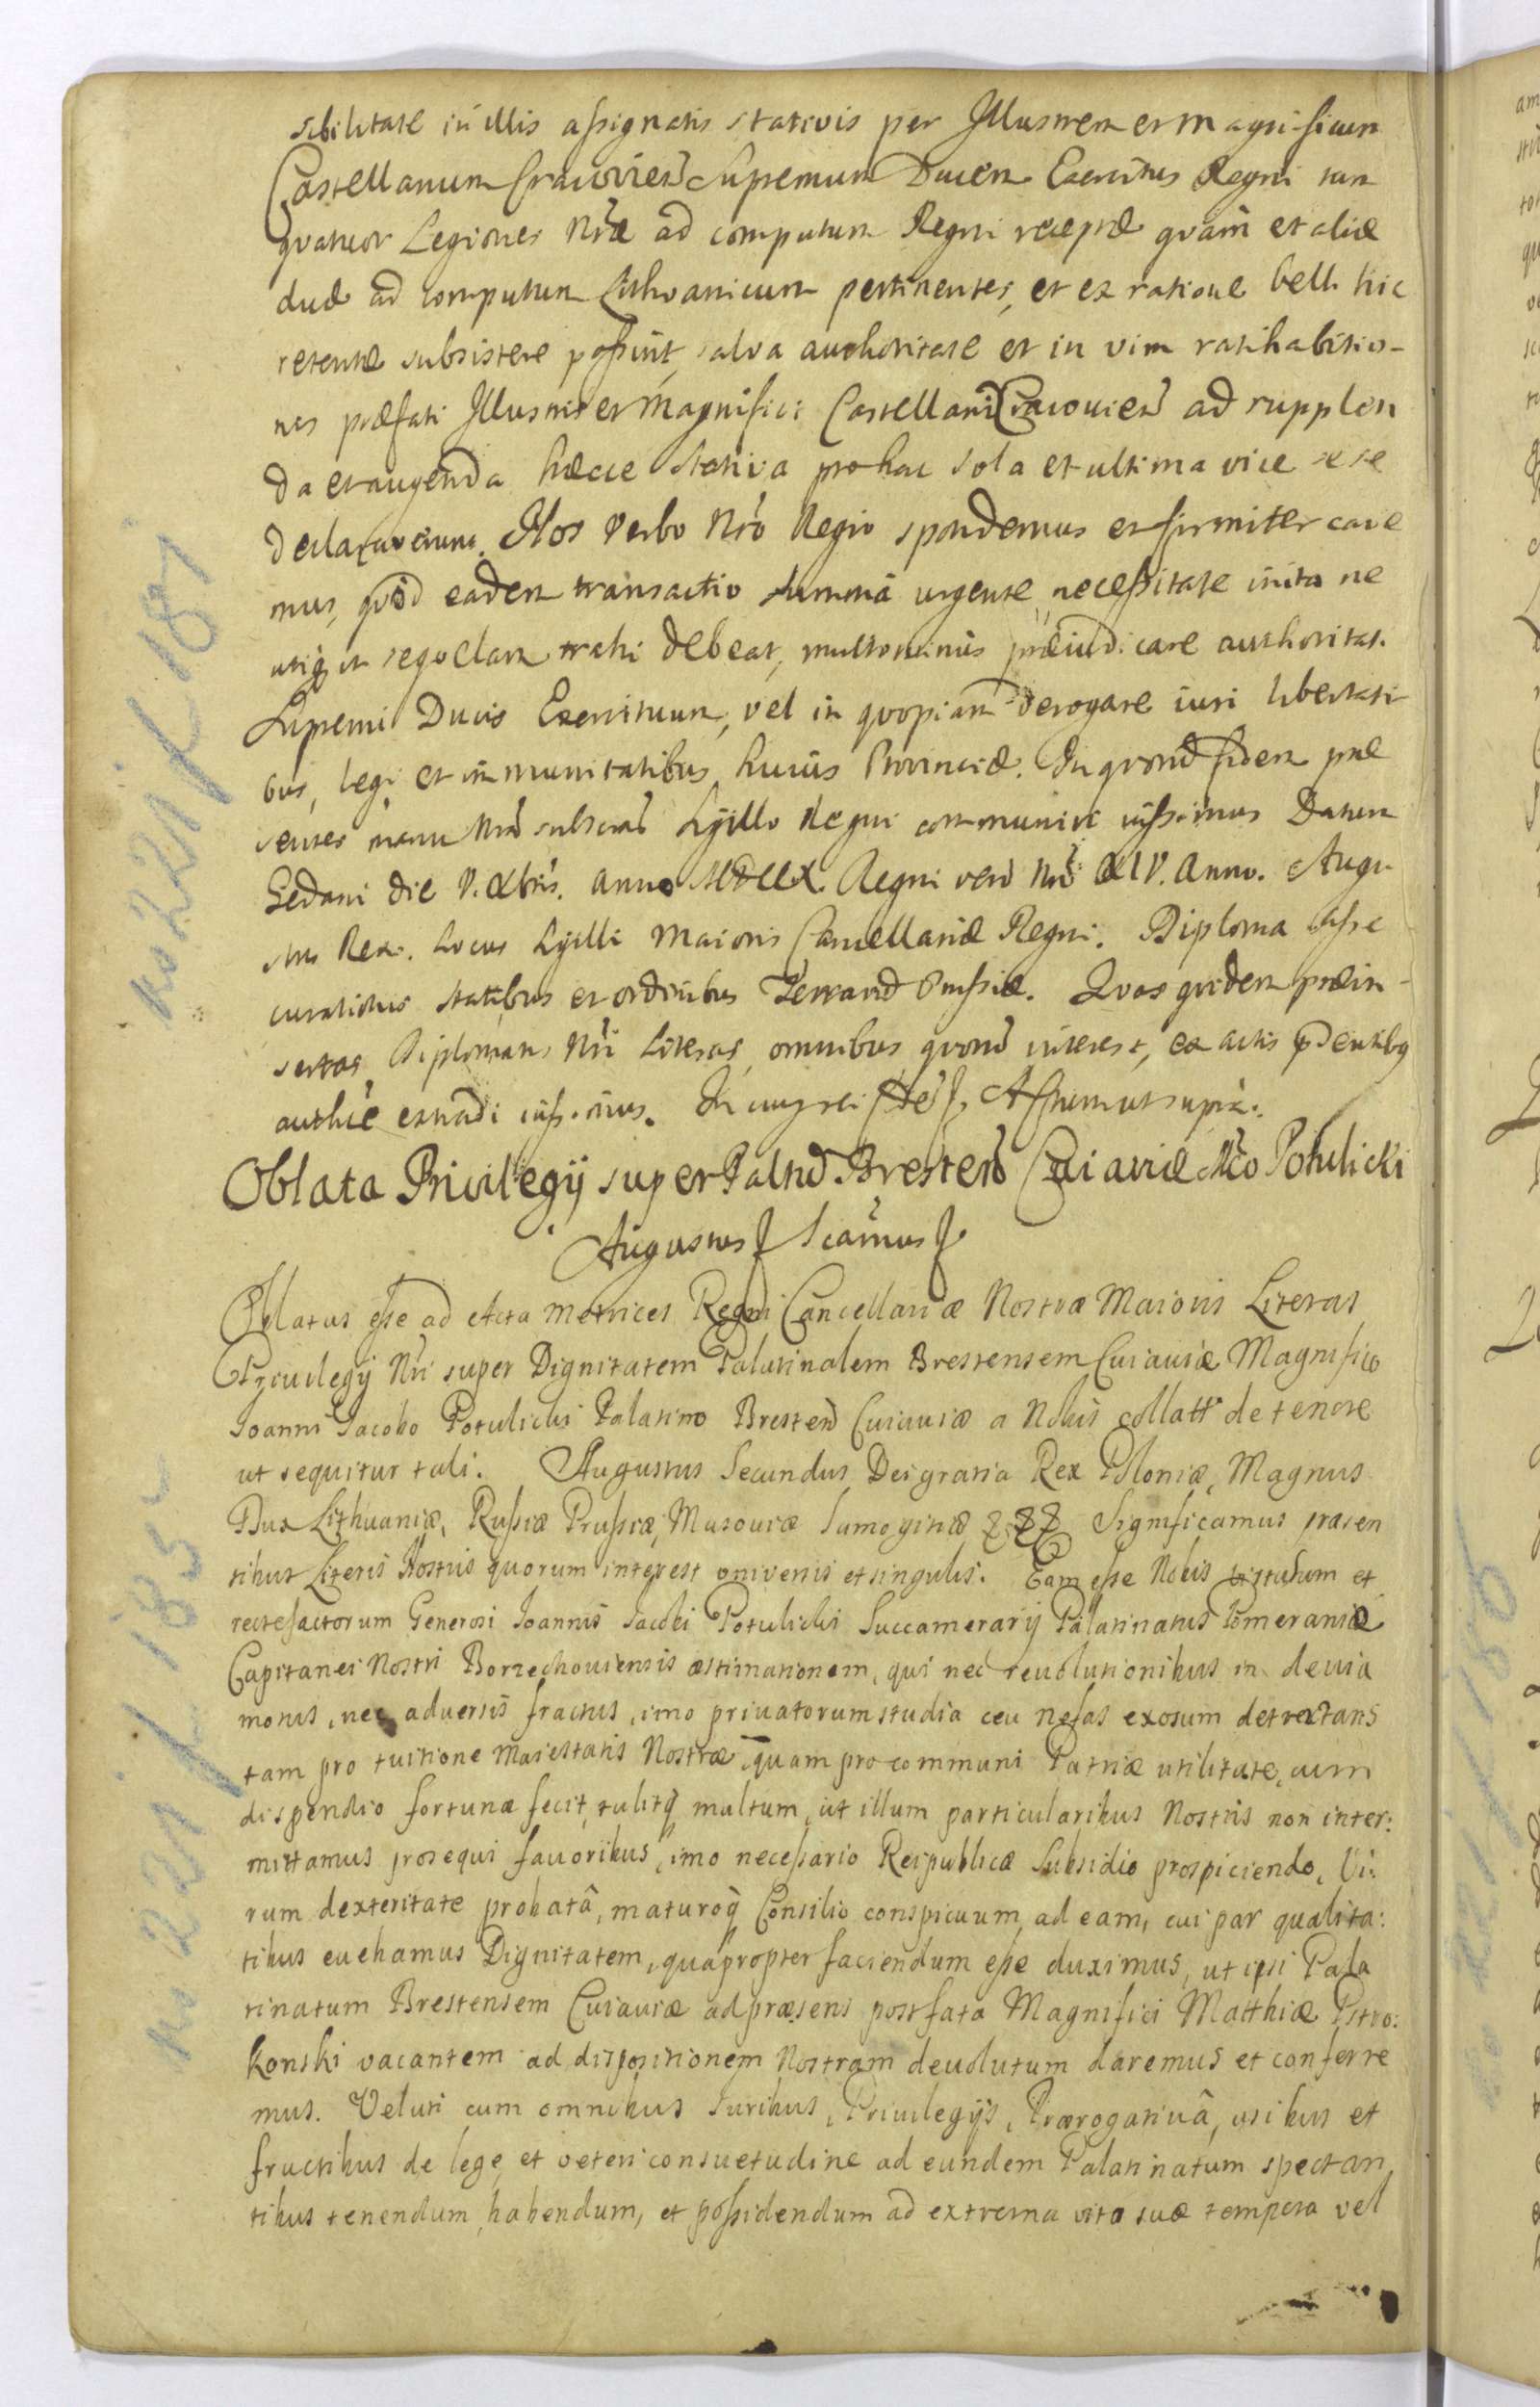 sibilitate in illis assignatis stativis per Illustrem et magnificum
Castellanum Cracovien Supremum Ducem Exercitus Regni tum
quatuor Legiones Nrae ad computum Regni receptae quam et aliae
duae ad computum Lithvanicum pertinentes, et ex ratione belli hic
retentae subsistere possint, salva authoritate et in vim ratihabitio-
nis praefati Illustris et Magnifici Castellani Cracovien ad supplen
da et augenda haecce stativa pro hac sola et ultima vice se se
declaraverunt. Nos Verbo Nro Regio spondemus et firmiter cave
mus, quod eadem transactio summa urgente necessitate inita ne
utiq in sequelam trahi debeat, multominus praeiudicare authoritati
Supremi Ducis Exercituum, vel in quopiam derogare iuri libertati
bus, legi et immunitatibus huius Provinciae. In quorum fidem prae
sentes manu Nra subscrat Sigillo Regni communiri iussimus Datum
Gedani die V. Xbris. anno MDCCX. Regni vero Nri XIV. Anno. Augu
stus Rex. Locus Sigilli Maioris Cancellariae Regni. Diploma asse
curationis statibus et ordinibus Terrarum Prussiae. Quas quidem prein-
sertas Diplomatis Nri Literas, omnibus quorum interest, ex actis pdentibus
authce extradi iussimus. In cuius rei fidem Actum ut supra.
Oblata Privilegij super Paltum Bresten Cuiaviae Mco Potulicki
Augustus Scamus
Oblatas esse ad Acta Metrices Regni Cancellariae Nostrae Maioris Literas
Privilegij Nri super Dignitatem Palatinalem Brestensem Cuiaviae Magnifico
Joanni Jacobo Potulicki Palatino Bresten Cuiaviae a Nobis collatt de tenore
ut sequitur tali. Augustus Secundus Dei gratia Rex Poloniae, Magnus
Dux Lithuaniae, Russiae Prussiae, Masoviae Samogitiae Significamus praesen
tibus Literis Nostris quorum interest universis et singulis. Eam esse Nobis virtutum et
rectefactorum Generosi Joannis Jacobi Potulicki Succamerarij Palatinatus Pomeraniae
Capitanei Nostri Borzechoviensis aestimationem, qui nec revolutionibus in devia
motus, nec adversis fractus, imo privatorum studia ceu nefas exosum detrectans
tam pro tuitione Maiestatis Nostrae quam pro communi Patriae utilitate, cum
dispendio fortunae fecit, tulitq multum, ut illum particularibus Nostris non inter:
mittamus prosequi favoribus, imo necessario Reipublicae Subsidio prospiciendo, Vi:
rum dexteritate probatâ, maturoq Consilio conspicuum, ad eam, cui par qualita:
tibus evehamus Dignitatem, quapropter faciendum esse duximus, ut ipsi Pala
tinatum Brestensem Cuiaviae ad praesens post fata Magnifici Matthiae Pstro:
konski vacantem ad dispositionem Nostram devolutum daremus et conferre
mus. Veluti cum omnibus Juribus, Privilegijs, Praerogativâ, usibus et
fructibus de lege et veteri consuetudine ad eundem Palatinatum spectan
tibus tenendum, habendum, et possidendum ad extrema vitae suae tempora vel